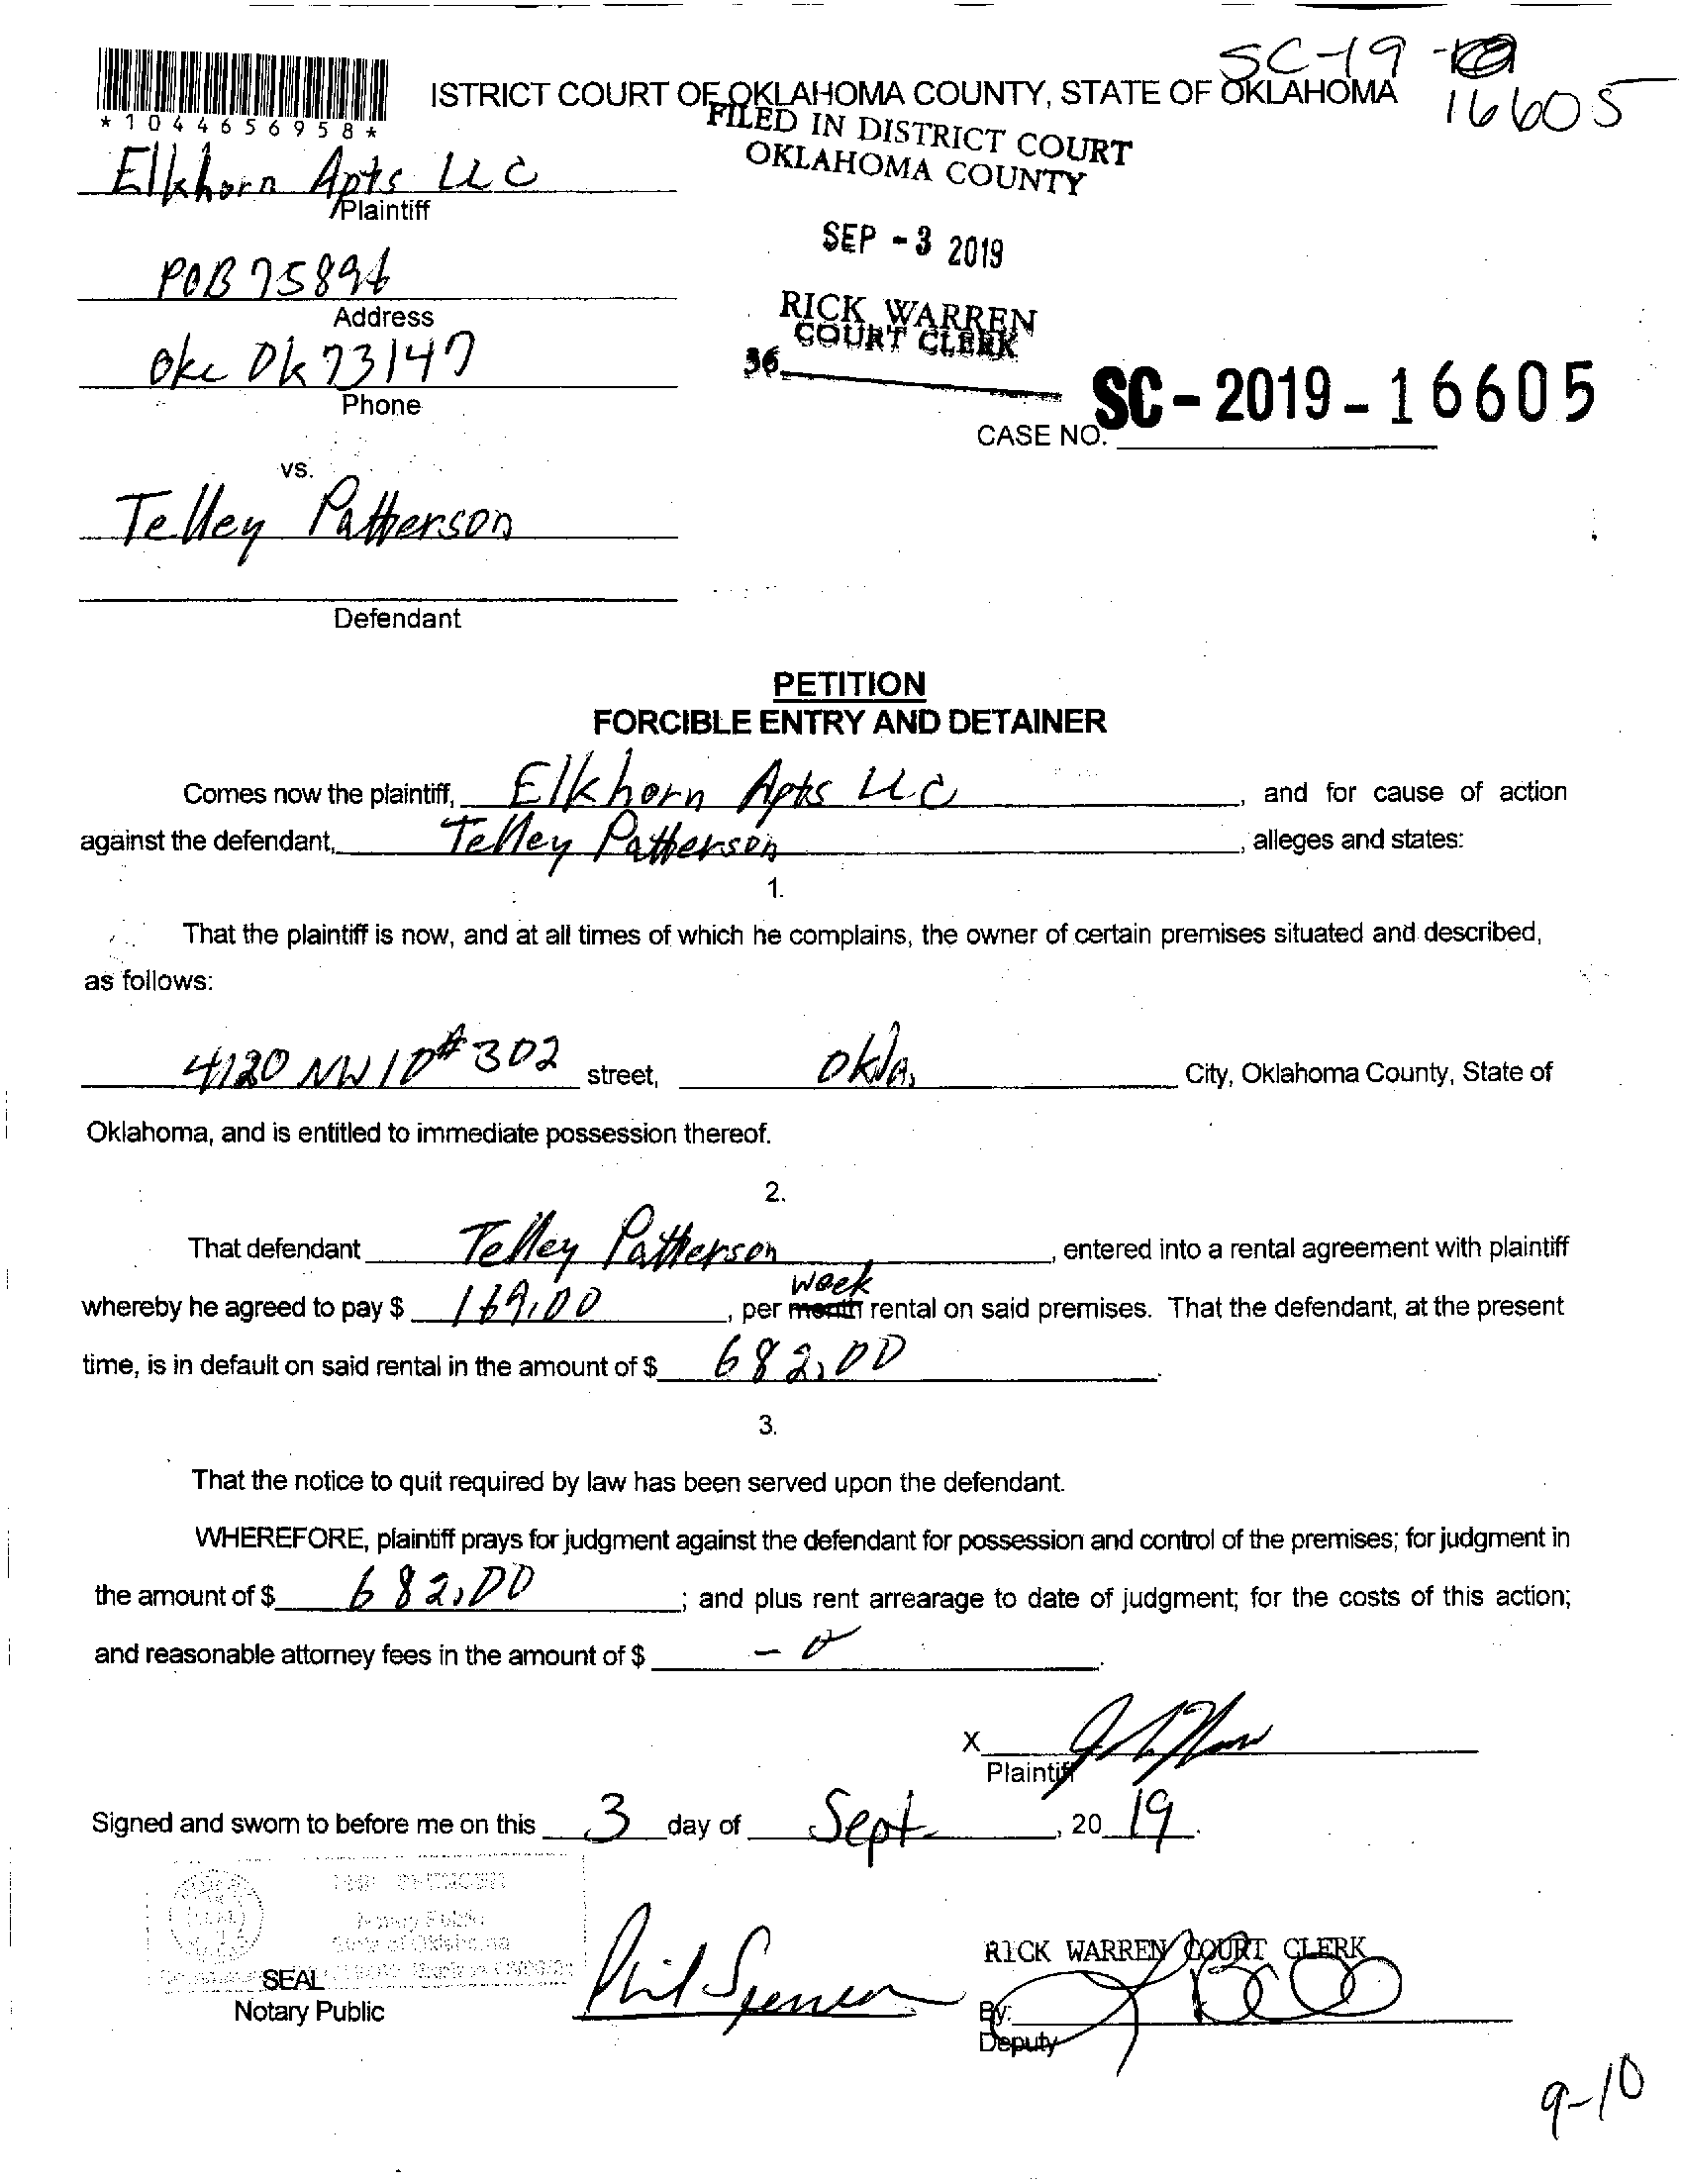 SC-19-
16605
*1044656958*
ISTRICT COURT OF OKLAHOMA COUNTY, STATE OF OKLAHOMA
FILED IN DISTRICT COURT
OKLAHOMA COUNTY
Elkhorn Apts LLC
Plaintiff
SEP - 3 2019
POB 75896
Address
RICK WARREN
COURT CLERK
Okc Ok 73147
Phone
36
SC - 2019 - 16605
CASE NO.
vs.
Telley Patterson
Defendant
PETITION
FORCIBLE ENTRY AND DETAINER
Comes now the plaintiff, Elkhorn Apts LLC, and for cause of action
against the defendant, Telley Patterson, alleges and states:
1.
That the plaintiff is now, and at all times of which he complains, the owner of certain premises situated and described,
as follows:
4120 NW 10 #302 street, Okla. City, Oklahoma County, State of
Oklahoma, and is entitled to immediate possession thereof.
2.
That defendant Telley Patterson, entered into a rental agreement with plaintiff
week
whereby he agreed to pay $ 169.00, per month rental on said premises. That the defendant, at the present
time, is in default on said rental in the amount of $ 682.00.
3.
That the notice to quit required by law has been served upon the defendant.
WHEREFORE, plaintiff prays for judgment against the defendant for possession and control of the premises; for judgment in
the amount of $ 682.00; and plus rent arrearage to date of judgment; for the costs of this action;
and reasonable attorney fees in the amount of $ - 0.
X
Plaintiff
Signed and sworn to before me on this 3 day of Sept., 20 19.
Notary Public
State of Oklahoma
SEAL
Notary Public
Phil Spencer
RICK WARREN COURT CLERK
By:
Deputy
9-10